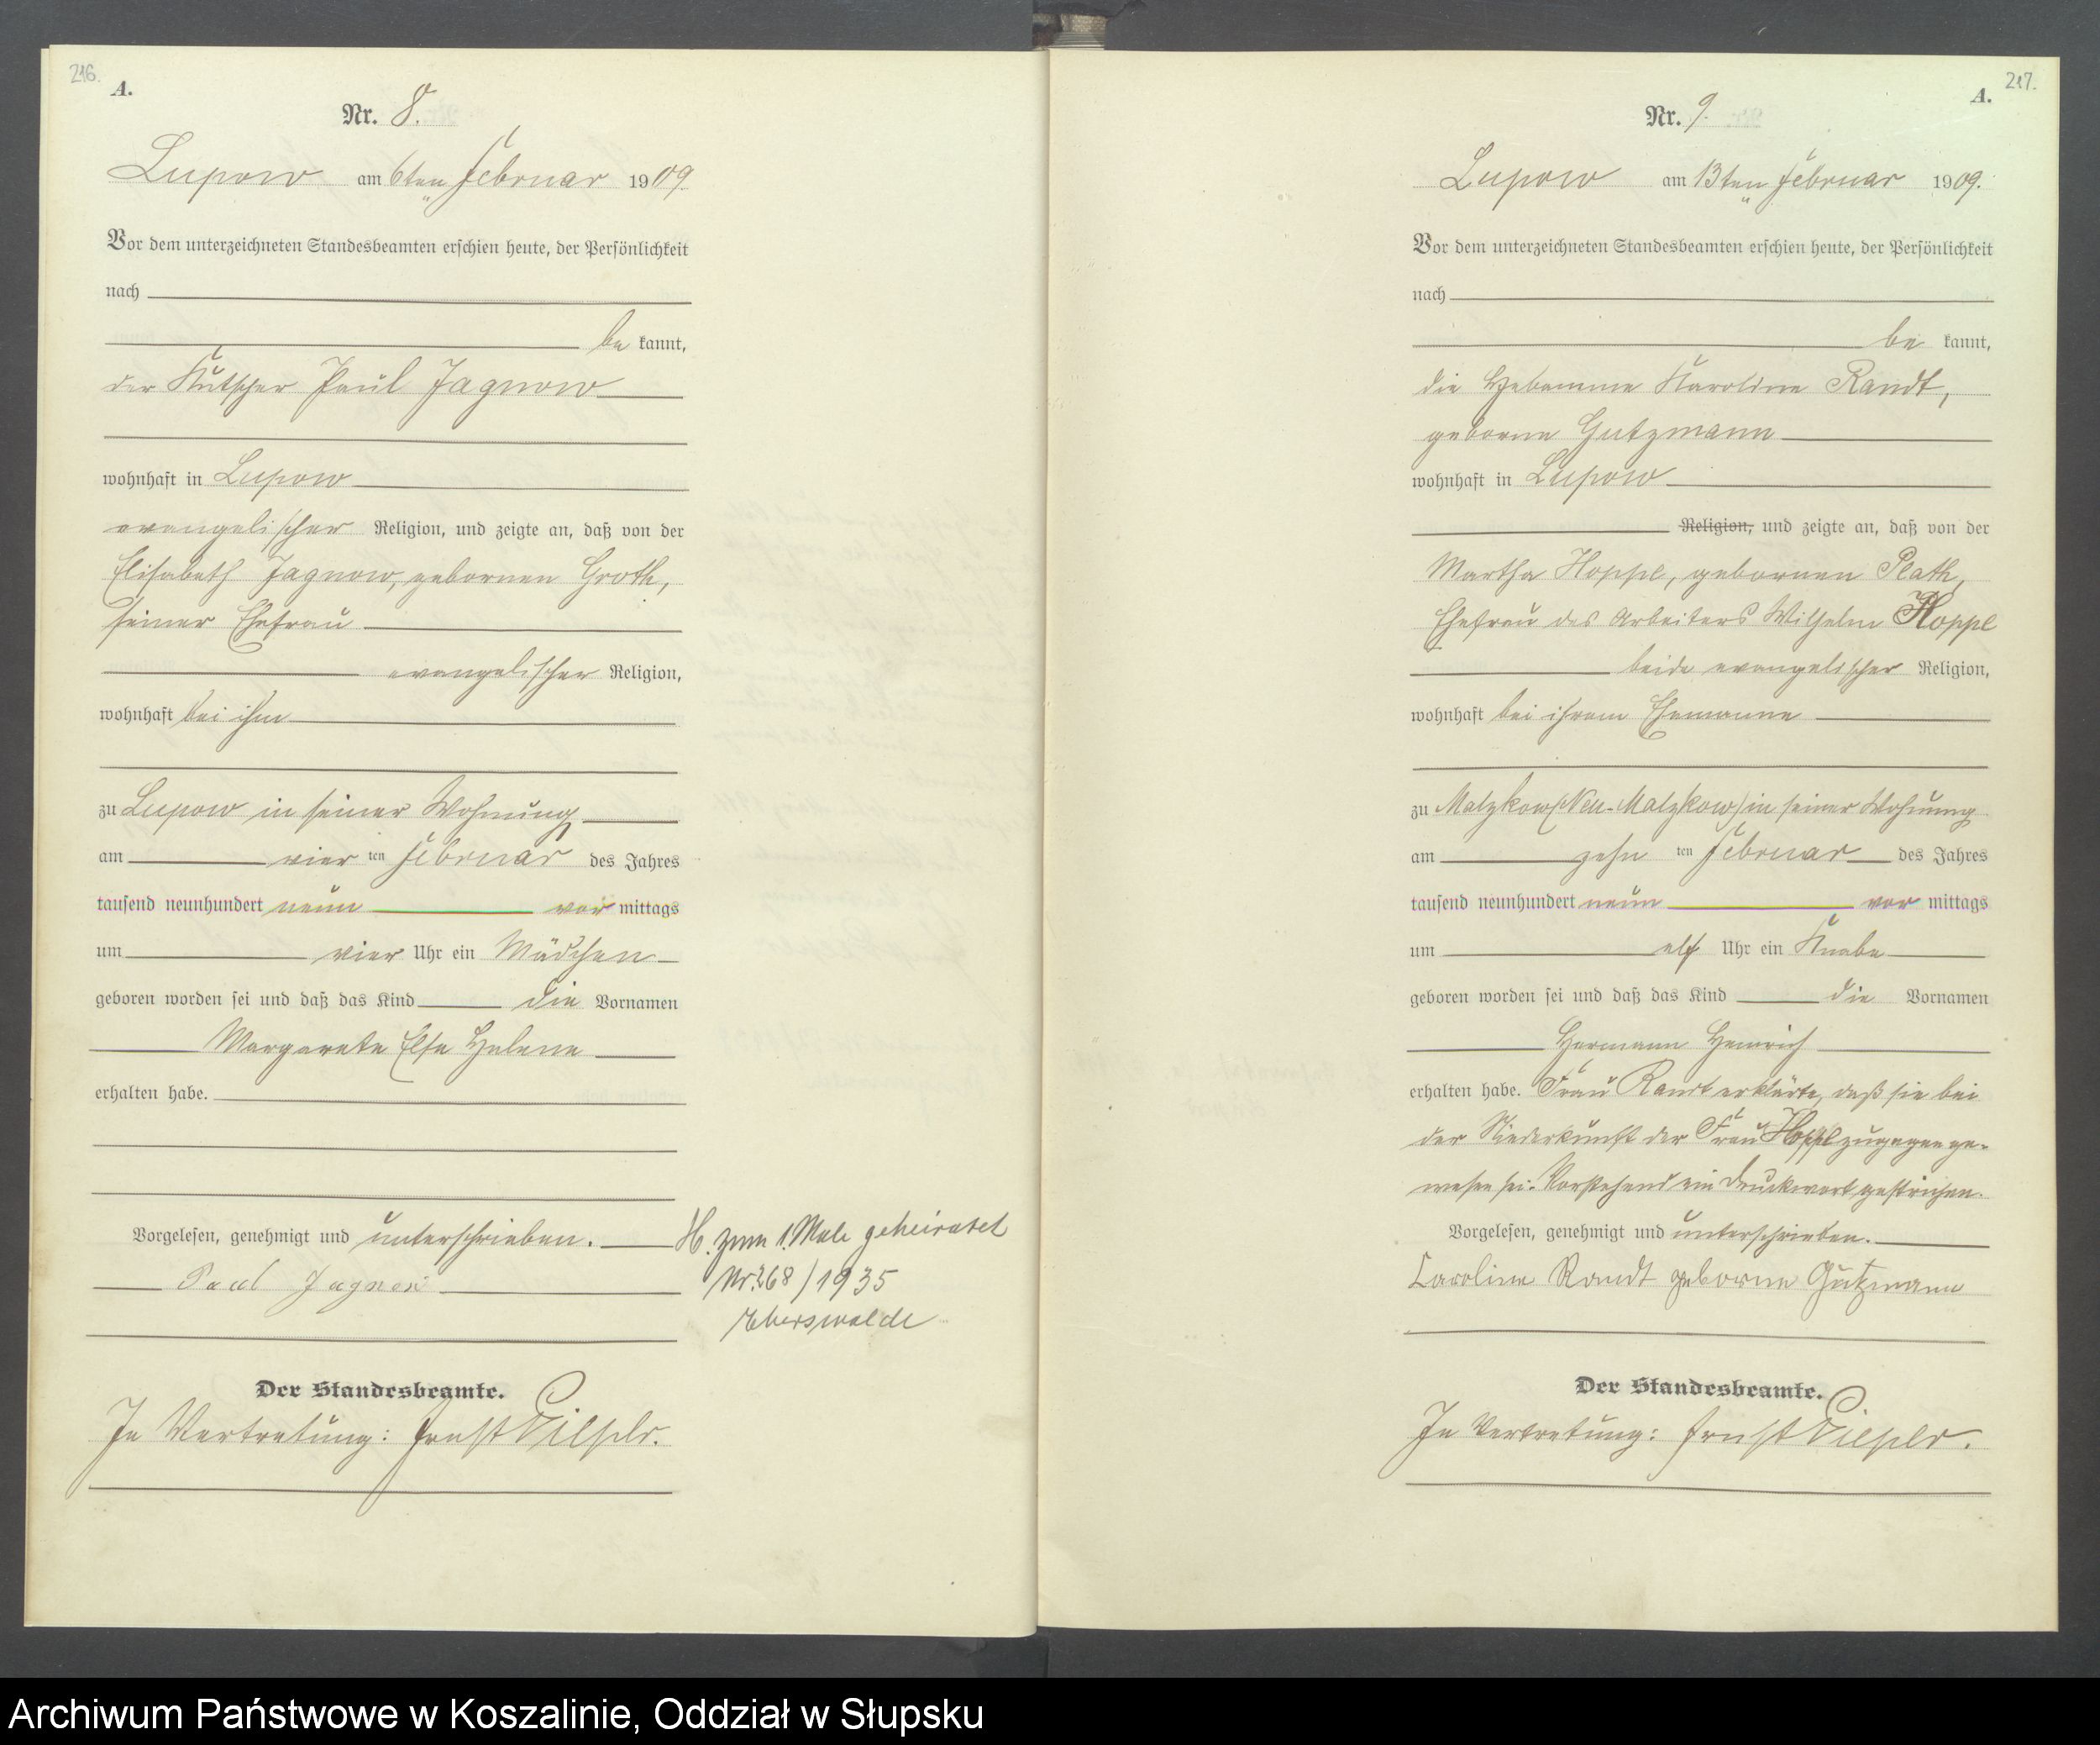 216.
A.
Nr. 8.
Lupow am 6ten Februar 1909.
Vor dem unterzeichneten Standesbeamten erschien heute, der Persönlichkeit
nach
be kannt,
der Kutscher Paul Jagnow
wohnhaft in Lupow
evangelischer Religion, und zeigte an, daß von der
Elisabeth Jagnow, gebornen Groth,
seiner Ehefrau
evangelischer Religion,
wohnhaft bei ihm
zu Lupow in seiner Wohnung
am vier ten Februar des Jahres
tausend neunhundert neun vor mittags
um vier Uhr ein Mädchen
geboren worden sei und daß das Kind die Vornamen
Margarete Else Helene
erhalten habe.
Vorgelesen, genehmigt und unterschrieben.
Paul Jagnow
H. zum 1. Male geheiratet
Nr. 268/1935
Eberswalde
Der Standesbeamte.
In Vertretung: Ernst
217.
A.
Nr. 9.
Lupow am 13ten Februar 1909.
Vor dem unterzeichneten Standesbeamten erschien heute, der Persönlichkeit
nach
be kannt,
die Hebamme Karoline Randt,
geborne Gutzmann
wohnhaft in Lupow
Religion, und zeigte an, daß von der
Martha Hoppe, gebornen Plath,
Ehefrau des Arbeiters Wilhelm Hoppe
beide evangelischer Religion,
wohnhaft bei ihrem Ehemanne
zu Malzkow (Neu-Malzkow) in seiner Wohnung
am zehn ten Februar des Jahres
tausend neunhundert neun vor mittags
um elf Uhr ein Knabe
geboren worden sei und daß das Kind die Vornamen
Hermann Heinrich
erhalten habe. Frau Randt erklärte, daß sie bei
der Niederkunft der Frau Hoppe zugegen ge-
wesen sei. Vorstehend ein Druckwort gestrichen.
Vorgelesen, genehmigt und unterschrieben.
Caroline Randt geborne Gutzmann
Der Standesbeamte.
In Vertretung: Ernst
Archiwum Państwowe w Koszalinie, Oddział w Słupsku